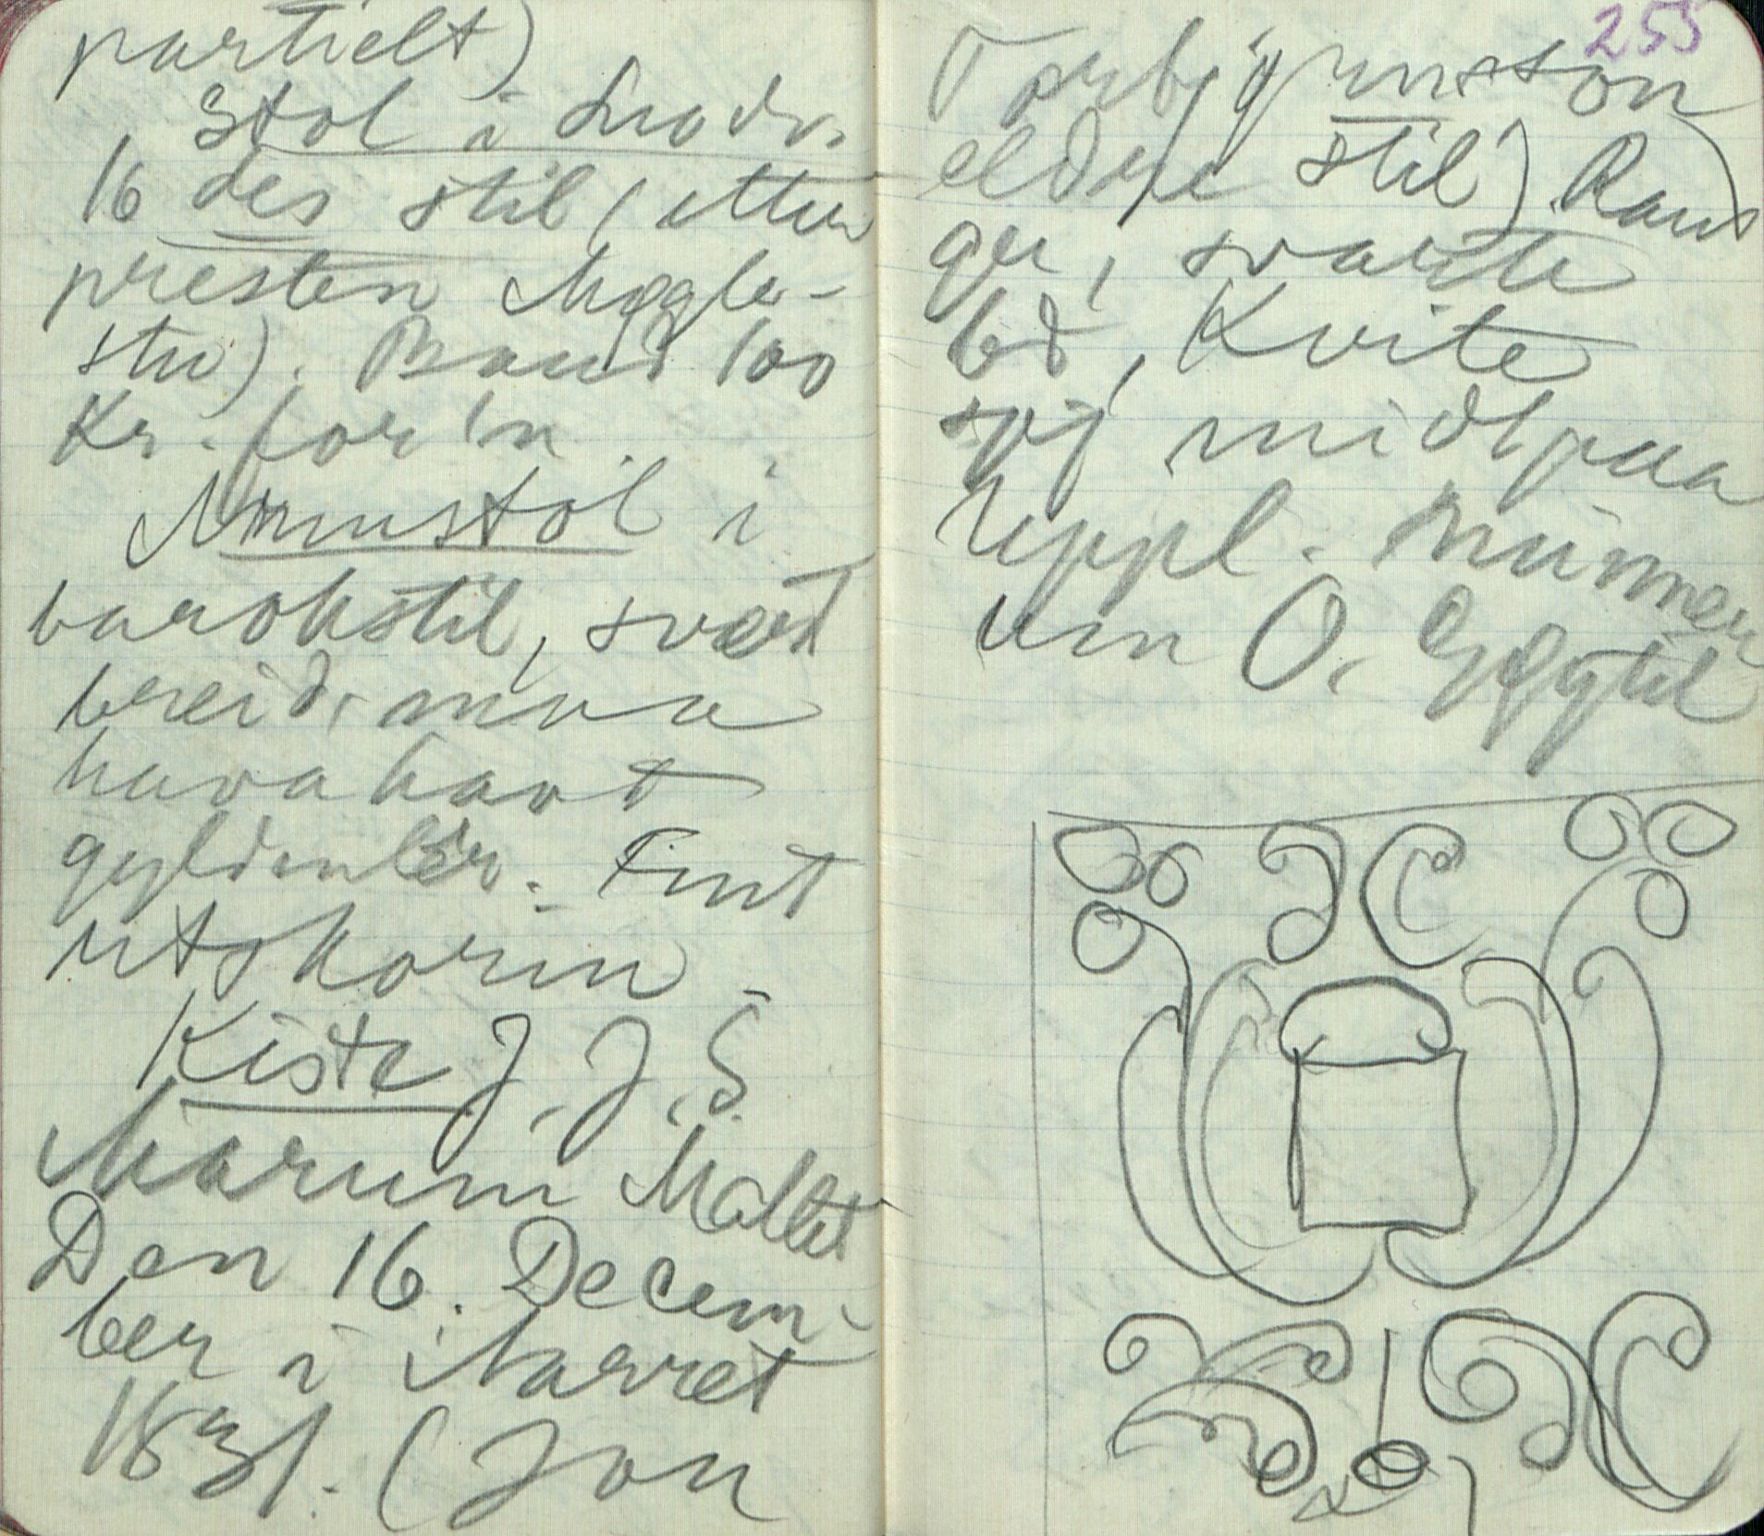 partielt)
Stol i Ludv.
16 des stil (etter
presten Mogle-
stu). Baud 100
Kr. for'n.
Armstol i
barokstil, svært
breid, maa
hava havt
gyldenlær. Fint
utskorin.
Kiste J. J. S.
Marum Mallet
Den 16. Decem-
ber i Aarret
1831. (Jon
255
Torbjørnson
eldre stil) Raud
ger, svarte
bd, Kvite
spj midtpaa
Uppl. minner
um O.